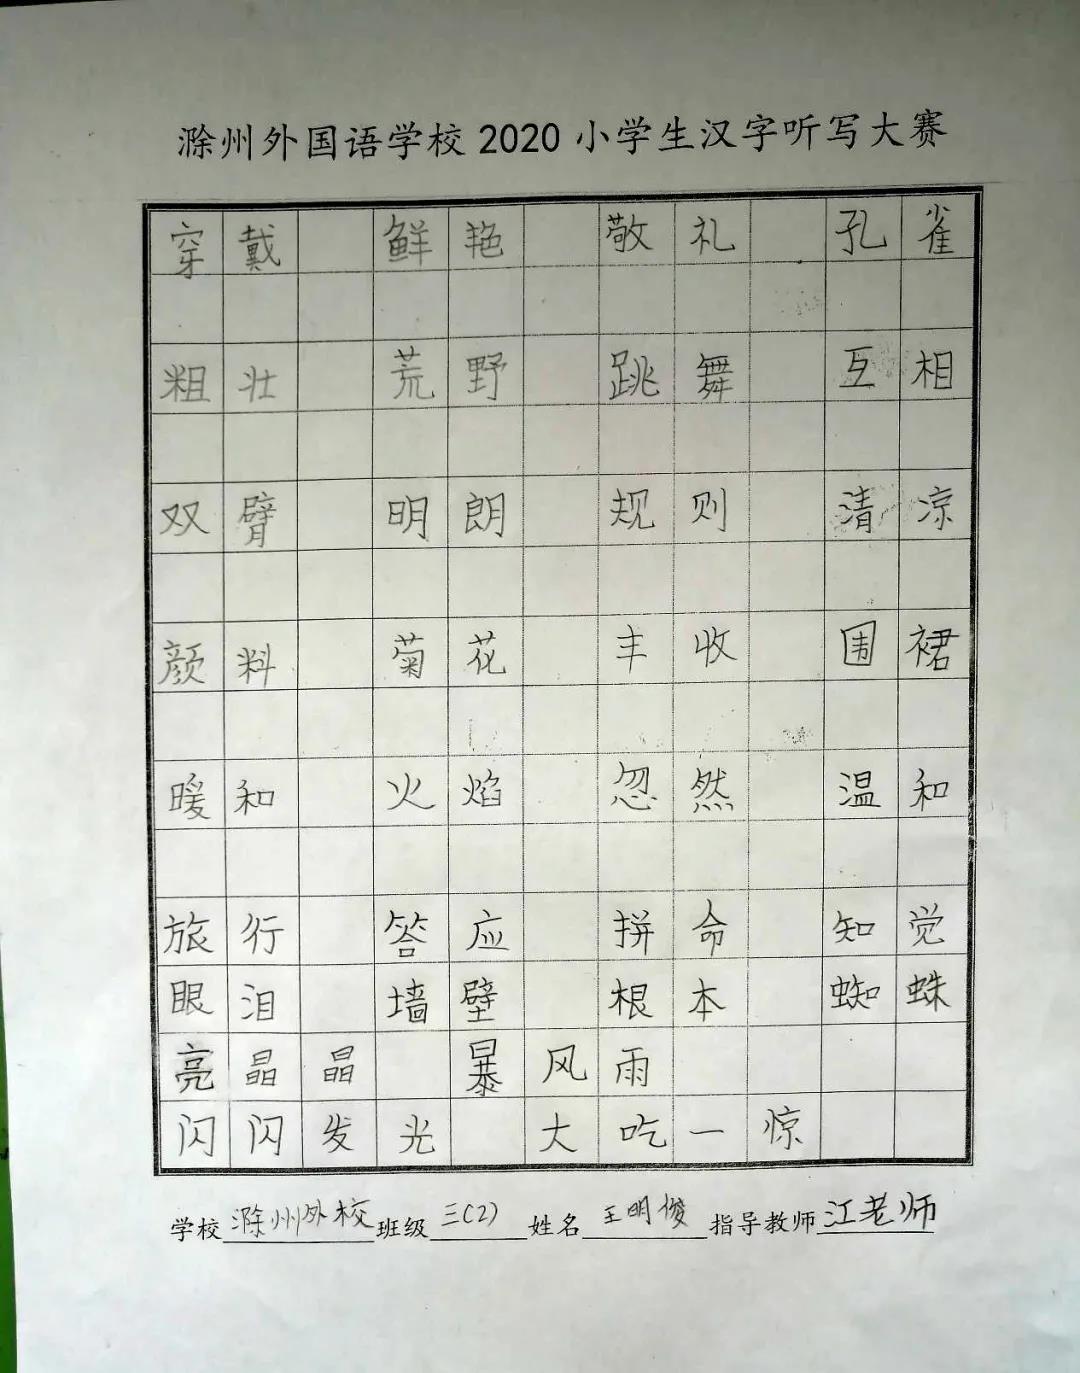 滁州外国语学校2020小学生汉字听写大赛
穿戴 鲜艳 敬礼 孔雀
粗壮 荒野 跳舞 互相
双臂 明朗 规则 清凉
颜料 菊花 丰收 围裙
暖和 火焰 忽然 温和
旅行 答应 拼命 知觉
眼泪 墙壁 根本 蜘蛛
亮晶晶 暴风雨
闪闪发光 大吃一惊
学校 滁州外校 班级 三(2) 姓名 王明俊 指导教师 江老师